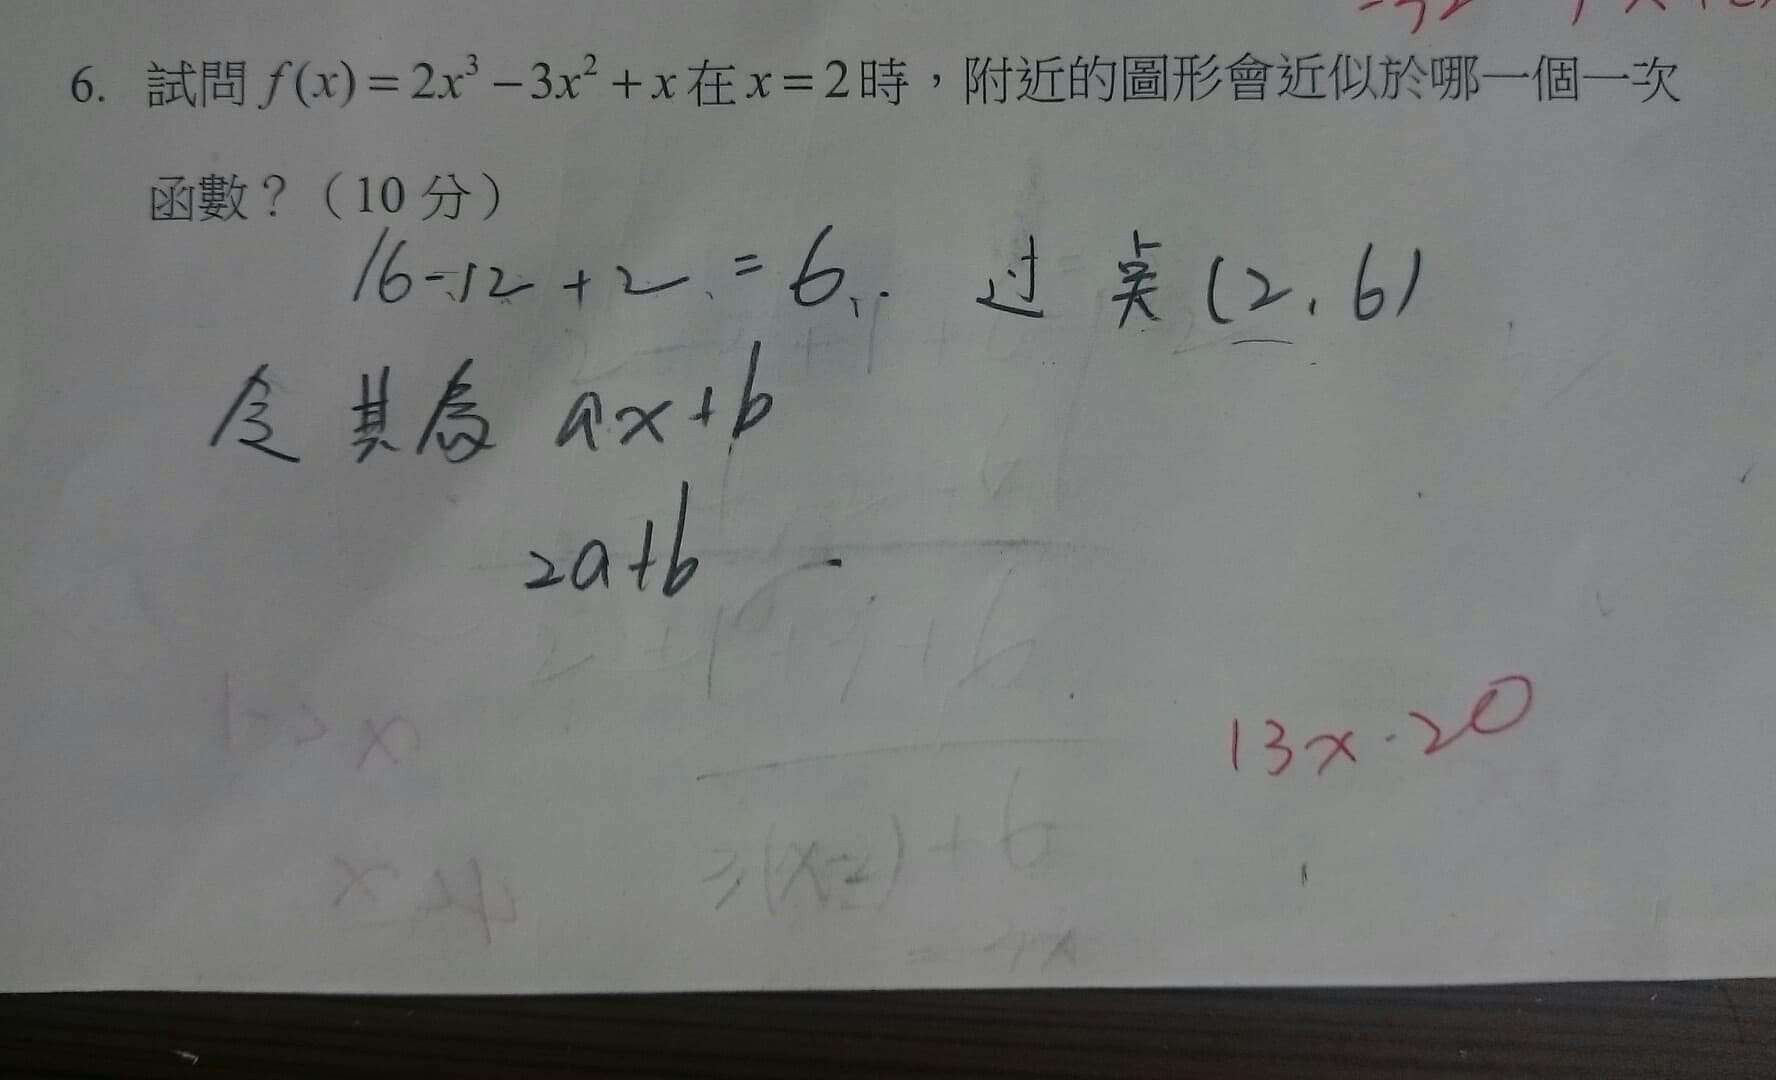 6. 試問 f(x) = 2x³ − 3x² + x 在 x = 2 時，附近的圖形會近似於哪一個一次
函數？（10 分）
16-12+2 = 6 过点(2,6)
令其為 ax+b
2a+b
13x-20